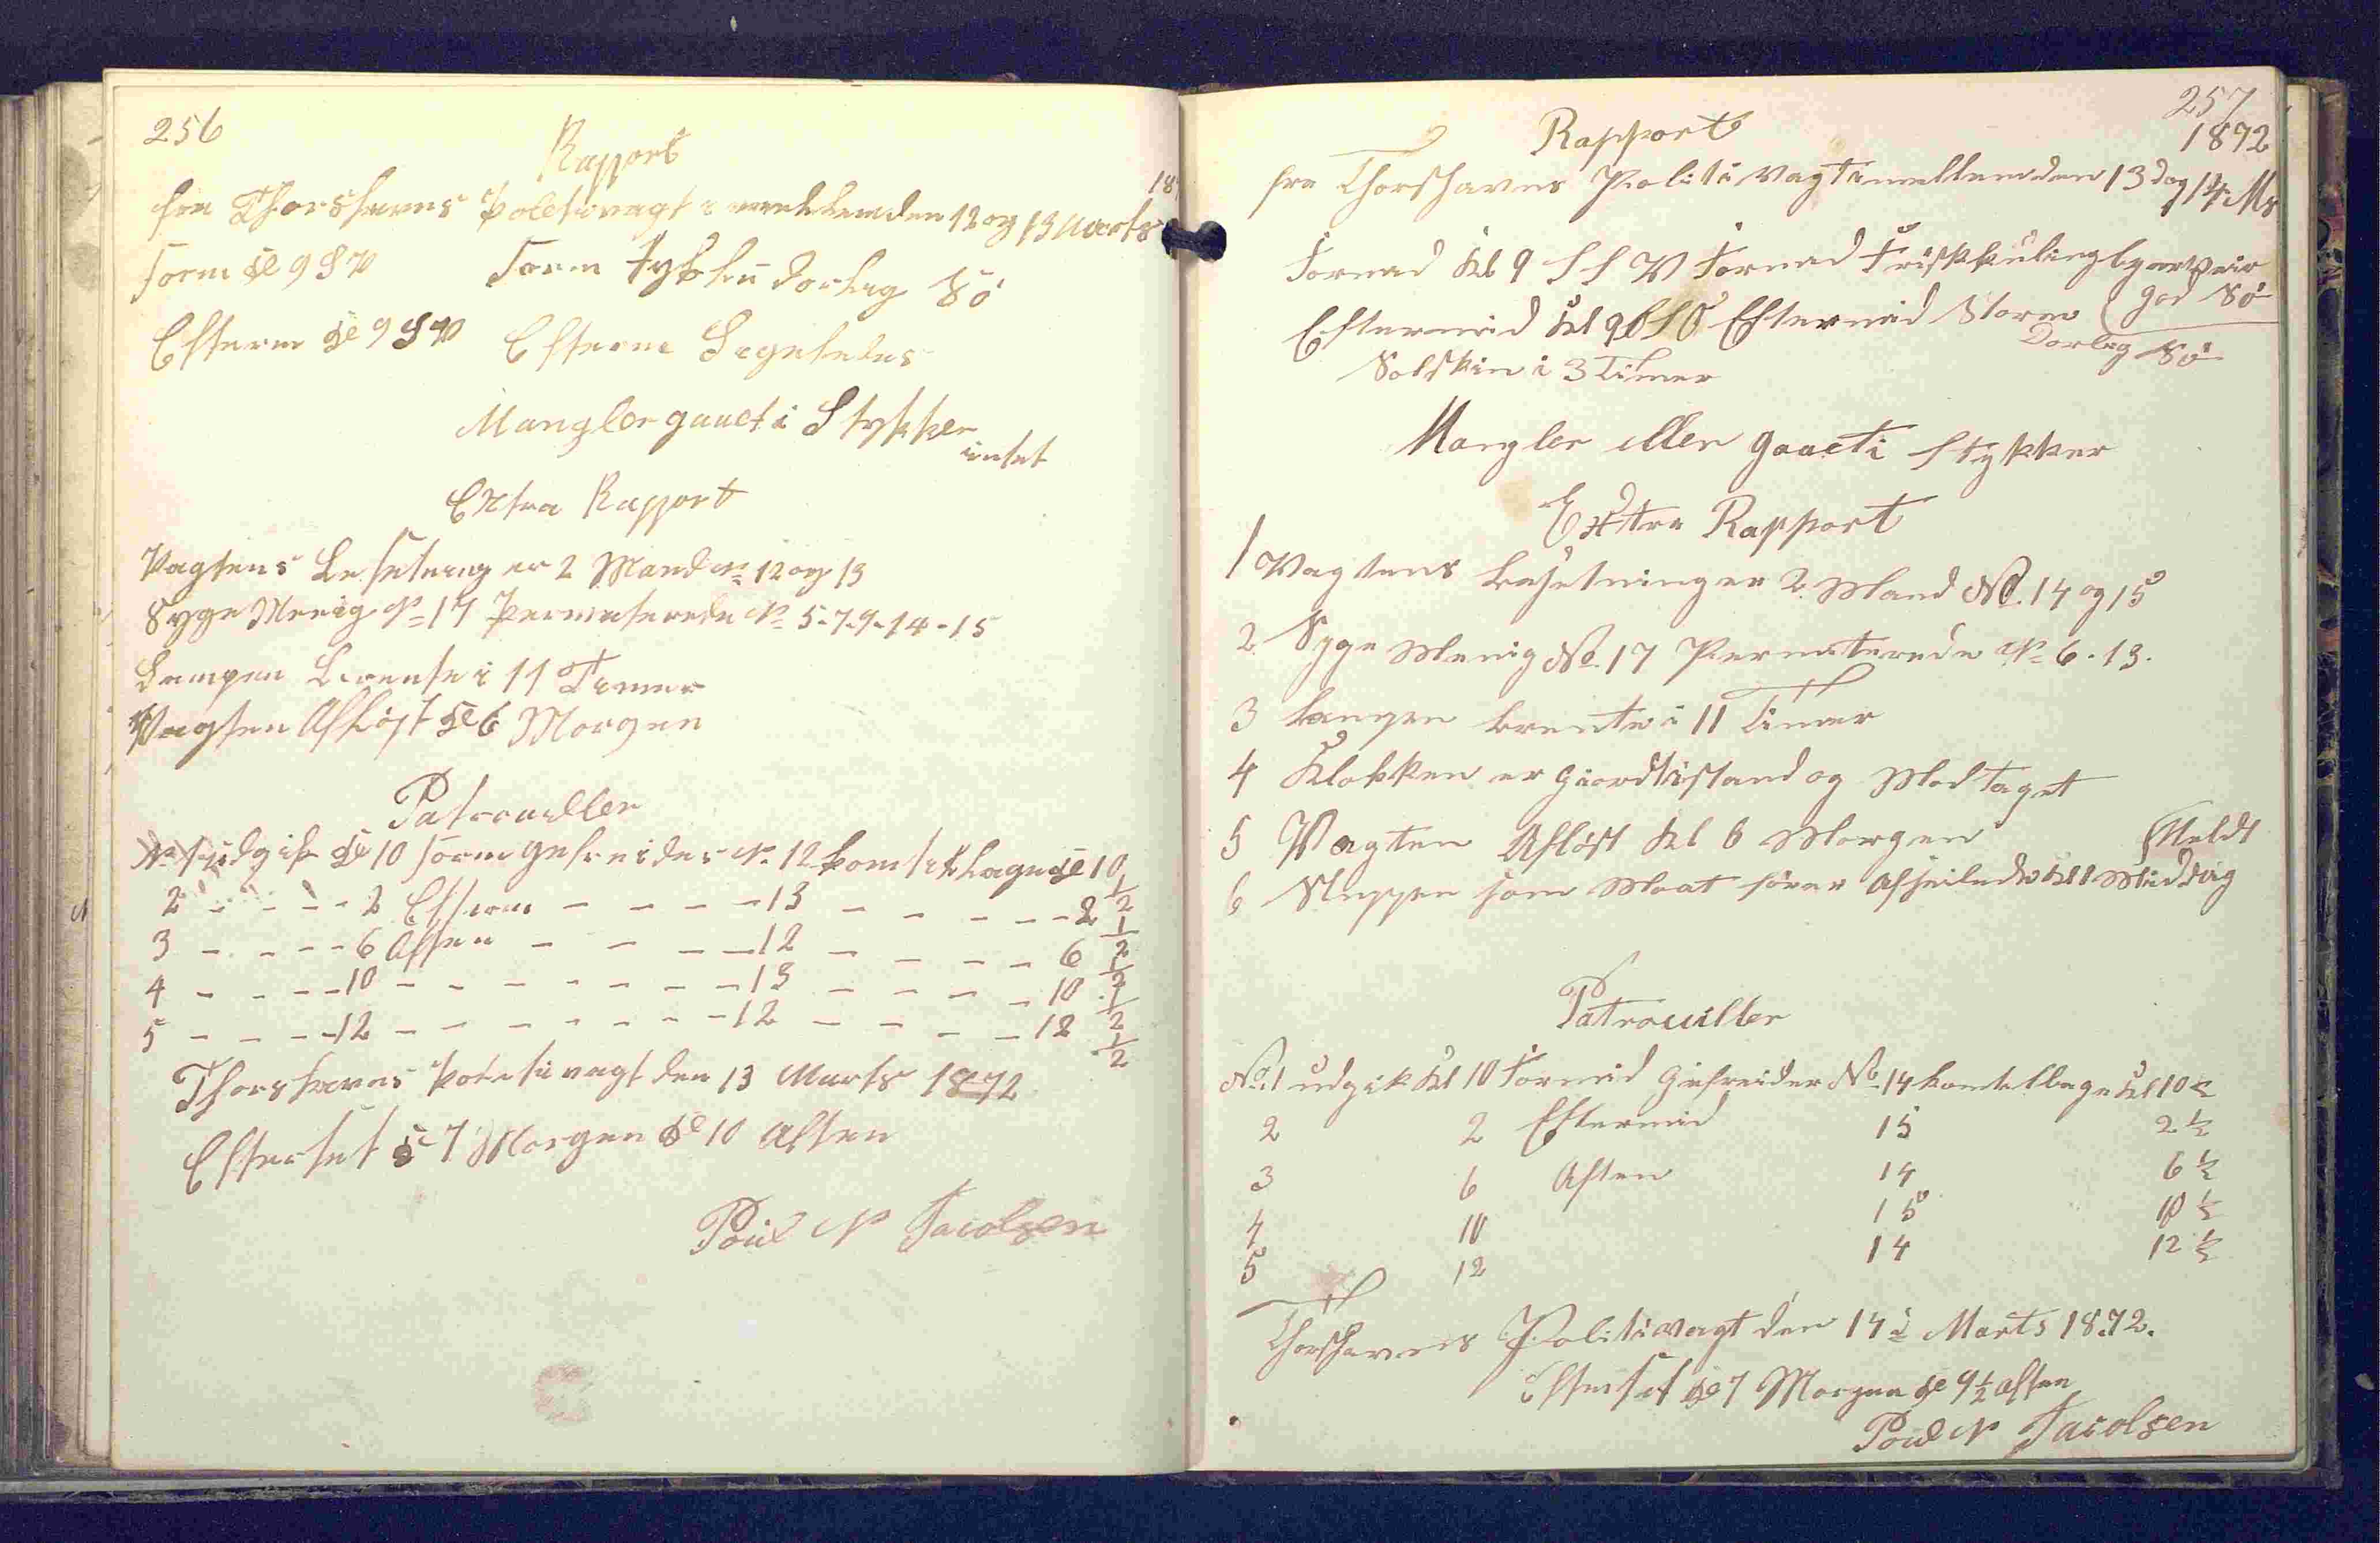 256
Rapport
187
fra Thorshavns Politivagt imellem den 12 og 13 Marts
Form Kl 9 SV Form Tyk Luft Daarlig Sö
Efterm Kl 9 SV Efterm Ligeledes
Mangler gaaet i Stykker
intet
Extra Rapport
Vagtens Besetning er 2 Mand No 12 og 13
Syge Menig No 17 Permeterede No 5-7-9-14-15
Lampen Brente i 11 Timer
Vagten Aflöst Kl 6 Morgen
Patrouiller
No 1 udgik Kl 10 Form Gefreider No 12 kom tilbage Kl 10 1/2
2 - - - - 2 Efterm - - - - 13 - - - - - 2 1/2
3 - - - - 6 Aften - - - - 12 - - - - 6 1/2
4 - - - - 10 - - - - - - - 13 - - - - 10 1/2
5 - - - - 12 - - - - - - - 12 - - - - 12 1/2
Thorshavns Politivagt den 13 Marts 1872
Efterset Kl 7 Morgen Kl 10 Aften
Poul N Jacobsen
257
Rapport
1872
fra Thorshavns Politi Vagt imellem den 13 og 14 Ms
Formid Kl 9 SSV Formid Frisk kuling god Sö
Eftermid Kl 9 Eftermid Storm Dorlig Sö
Solskin i 3 Timer
Mangler eller gaaet i Stykker
Extra Rapport
1 Vagtens Besetning er 2 Mand No. 14 og 15
2 Syge Menig No. 17 Permeterede No 6-13.
3 Lampen brente i 11 Timer
4 Klokken er giord i stand og Modtaget
5 Vagten Aflöst Kl 6 Morgen
6 Sluppen som Maat förer Afseilede Kl 1 Middag
Patrouiller
No. 1 udgik Kl 10 Formid Gefreider No 14 kom tilbage Kl 10 1/2
2 2 Eftermid 15 2 1/2
3 6 Aften 14 6 1/2
4 10 15 10 1/2
5 12 14 12 1/2
Thorshavns Politivagt den 14 Marts 1872.
Efterset Kl 7 Morgen Kl 9 1/2 Aften
Poul N Jacobsen